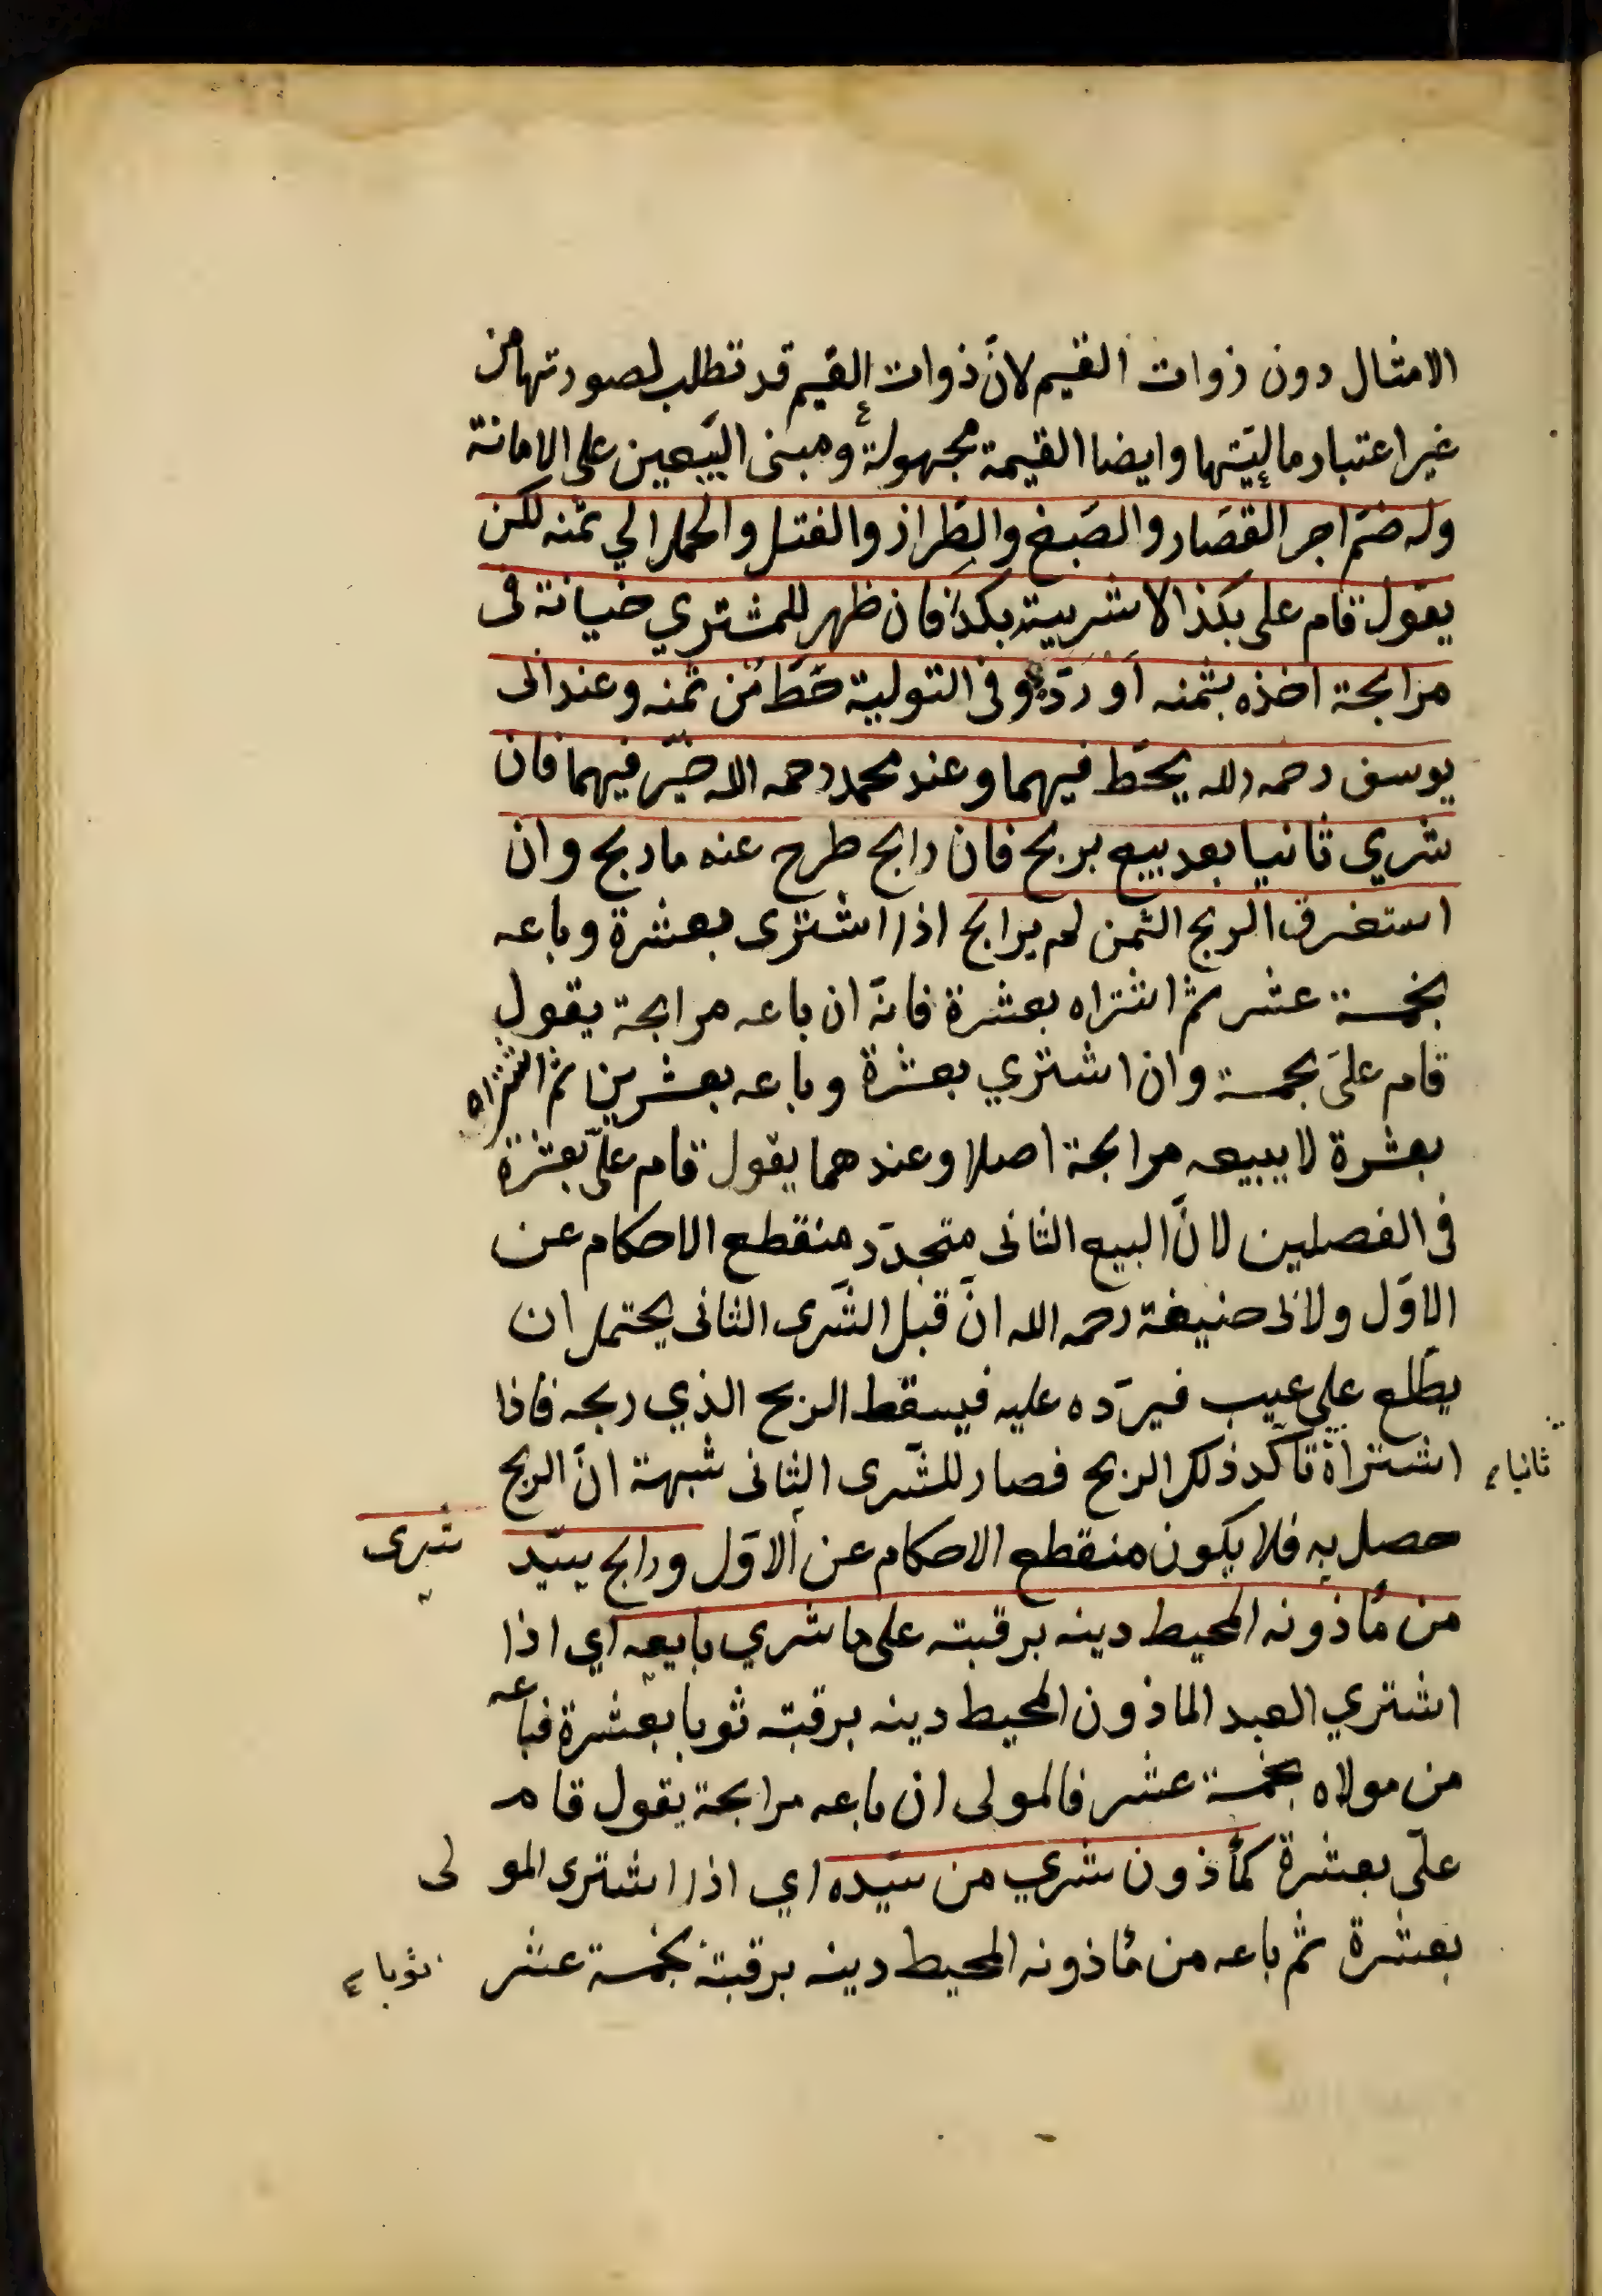 الامثال دون ذوات القيم لانّ ذوات القيم قد تطلب لصورتها من
غير اعتبار ماليّتها وايضا القيمة مجهولة ومبنى البيعين على الامانة
وله ضمّ اجر القصار والصّبغ والطّراز والفتل والحمل الي ثمنه لكن
يقول قام على بكذا لا اشريته بكذا فان ظهر للمشتري خيانة فى
مرابحة اخذه بثمنه او ردّه وفى التولية حطّ من ثمنه وعند ابى
يوسف رحمه الله يحطّ فيهما وعند محمد رحمه الله خيّر فيهما فان
شري ثانيا بعد بيع بربح فان رابح طرح عنه ما ربح وان
استغرق الربح الثمن لم يرابح اذا اشترى بعشرة وباعه
بخمسة عشر ثم اشتراه بعشرة فانّه ان باعه مرابحة يقول
قام علىّ بخمسة وان اشتري بعشرة وباعه بعشرين ثم اشتراه
بعشرة لا يبيعه مرابحة اصلا وعندهما يقول قام علىّ بعشرة
فى الفصلين لانّ البيع الثانى متجدّد منقطع الاحكام عن
الاوّل ولابى حنيفة رحمه الله انّ قبل الشّرى الثانى يحتمل ان
يطّلع علي عيب فيردّه عليه فيسقط الربح الذي ربحه فاذا
اشتراه تأكّد ذلك الربح فصار للشّرى الثانى شبهة انّ الربح
ثانيا
حصل به فلا يكون منقطع الاحكام عن الاوّل ورابح سيّد
شرى
من مأذونه المحيط دينه برقبته على ما شري بايعه اي اذا
اشتري العبد الماذون المحيط دينه برقبته ثوبا بعشرة فباعه
من مولاه بخمسة عشر فالمولى ان باعه مرابحة يقول قام
علىّ بعشرة كمأذون شري من سيّده اي اذا اشترى المولى
بعشرة ثم باعه من مأذونه المحيط دينه برقبته بخمسة عشر
ثوبا